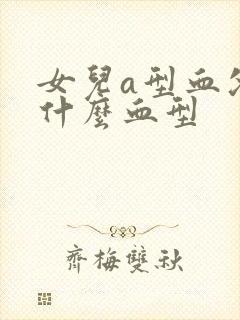 女兒a型血
什麼血型
齊梅雙秋